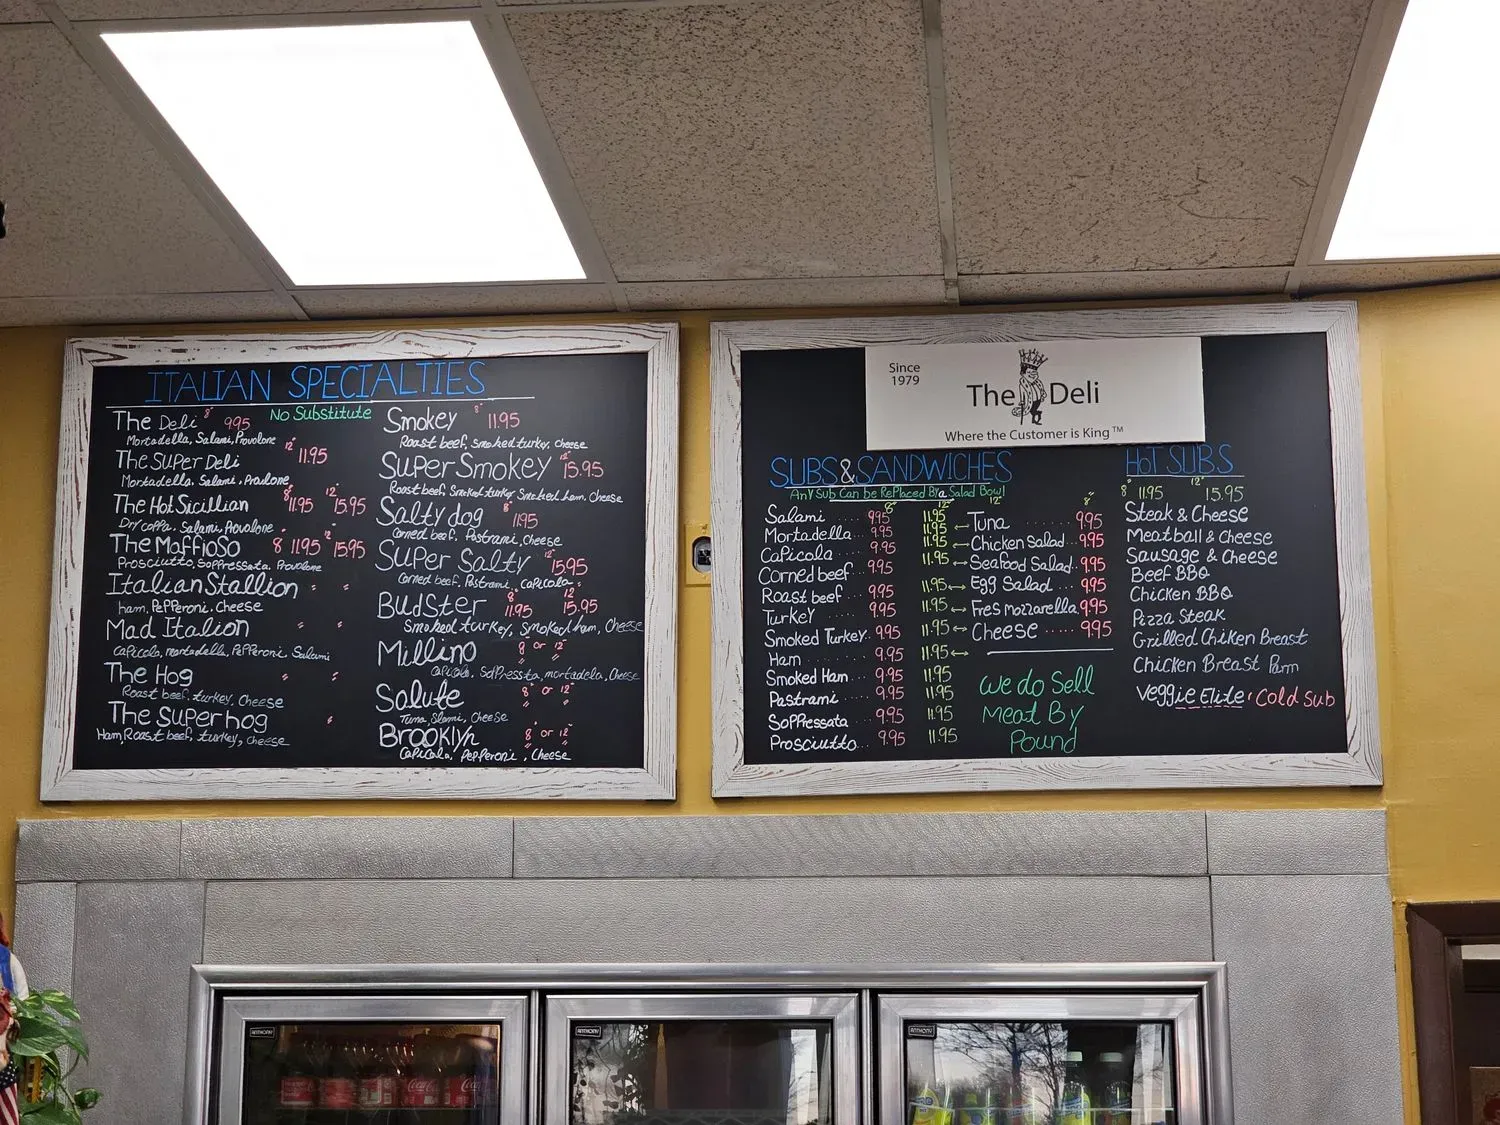 ITALIAN SPECIALTIES
No Substitute
The Deli 8" 9.95
Mortadella, Salami, Provolone
The Super Deli 12" 11.95
Mortadella, Salami, Provlone
The Hot Sicillian 8" 11.95 12" 15.95
Dry coppa, Salami, Provalone
The Maffioso 8" 11.95 12" 15.95
Prosciutto, Soppressata, Provalone
Italian Stallion " "
ham, Pepperoni, Cheese
Mad Italion " "
capicola, mortadella, Pepperoni Salami
The Hog " "
Roast beef, turkey, Cheese
The Superhog "
Ham, Roast beef, turkey, cheese
Smokey 8" 11.95
Roast beef, Smoked turkey, Cheese
Super Smokey 12" 15.95
Roast beef, Smoked turkey Smoked ham, Cheese
Salty dog 8" 11.95
Corned beef, Pastrami, cheese
Super Salty 12" 15.95
Corned beef, Pastrami, capicola
Budster 8" 11.95 12" 15.95
Smoked turkey, Smoked ham, Cheese
Millino 8" or 12"
" "
capicola, Soppressta, mortadela, Cheese
Salute 8" or 12"
" "
Tuna, Slami, Cheese
Brooklyn 8" or 12"
" "
Capicola, Pepperoni, Cheese
Since
1979
The Deli
Where the Customer is King™
SUBS & SANDWICHES
Any Sub Can be Replaced By a Salad Bowl
8" 12"
Salami .... 9.95 11.95
Mortadella.. 9.95 11.95
Capicola ... 9.95 11.95
Corned beef.. 9.95 11.95
Roast beef.. 9.95 11.95
Turkey .... 9.95 11.95
Smoked Turkey. 9.95 11.95
Ham ...... 9.95 11.95
Smoked Ham.. 9.95 11.95
Pastrami ... 9.95 11.95
Soppressata .. 9.95 11.95
Prosciutto.. 9.95 11.95
12" 8"
↔ Tuna ...... 9.95
↔ Chicken Salad.. 9.95
↔ Seafood Salad.. 9.95
↔ Egg Salad ... 9.95
↔ Fres mozzarella 9.95
↔ Cheese ..... 9.95
We do Sell
Meat By
Pound
HOT SUBS
8" 11.95 12" 15.95
Steak & Cheese
Meatball & Cheese
Sausage & Cheese
Beef BBQ
Chicken BBQ
Pizza Steak
Grilled Chiken Breast
Chicken Breast Parm
Veggie Elite, Cold Sub
ANTHONY
ANTHONY
ANTHONY
Coca-Cola